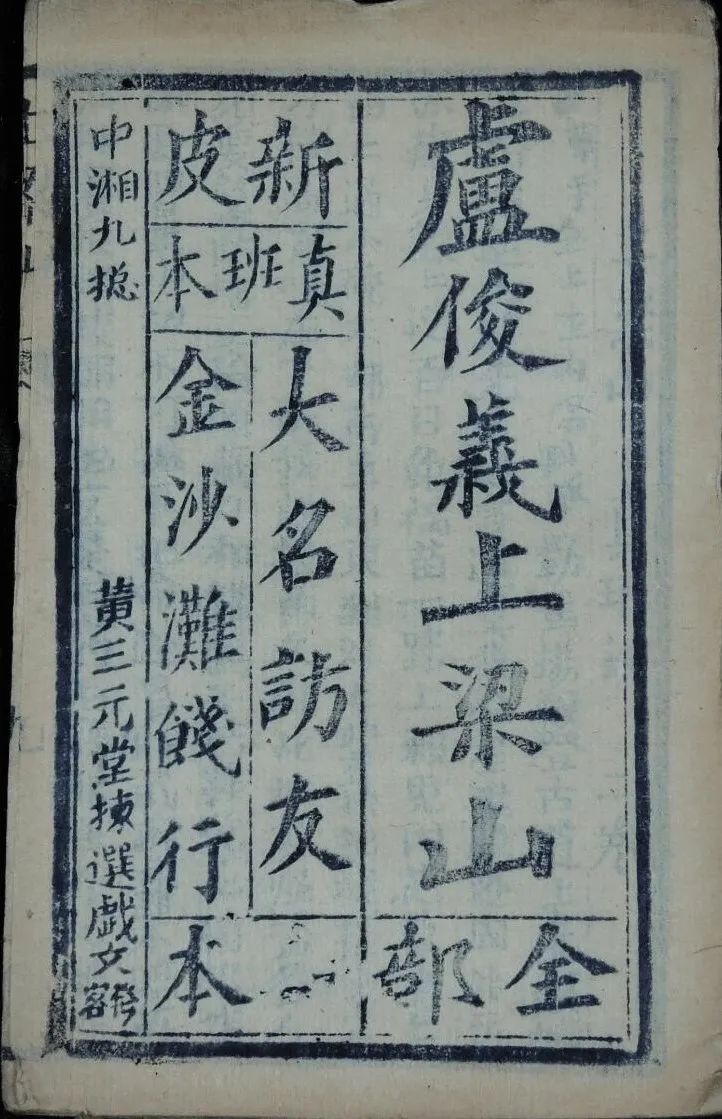 盧俊義上梁山
全部
新皮
真班本
大名訪友
金沙灘餞行
本
中湘九摠
黃三元堂揀選戲文